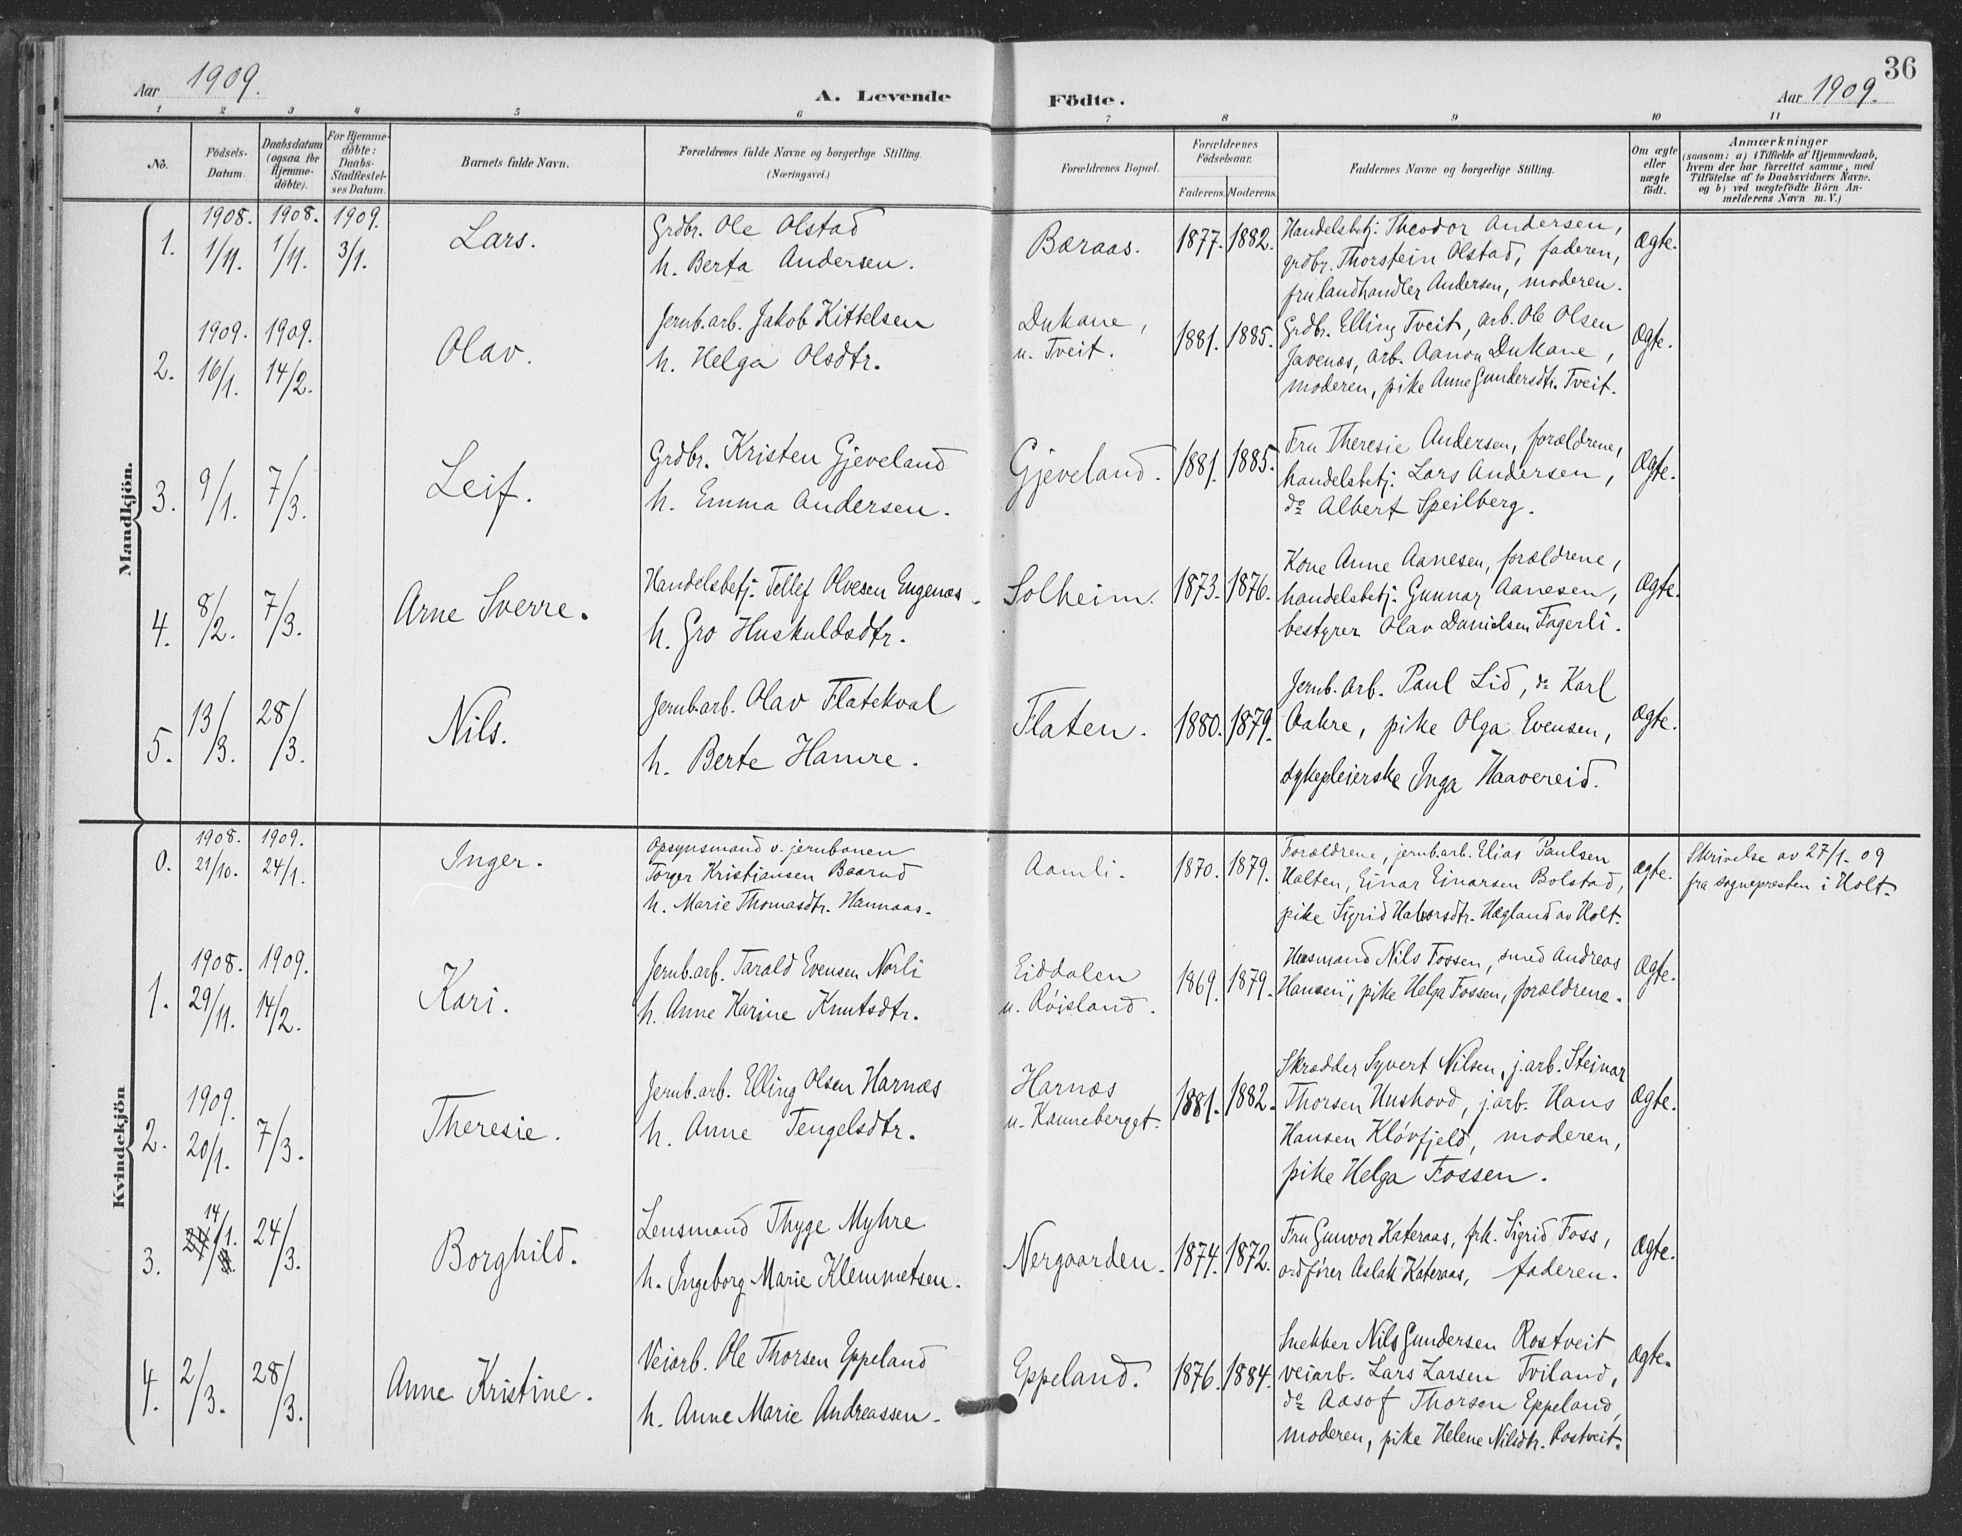 36
Aar 1909.
A. Levende Födte.
Aar 1909.
1 2 3 4 5 6 7 8 9 10 11
No.
Födsels-
Datum.
Daabsdatum
(ogsaa for
Hjemme-
döbte).
For Hjemme-
döbte:
Daabs-
Stadfæstel-
ses Datum.
Barnets fulde Navn.
Forældrenes fulde Navne og borgerlige Stilling.
(Næringsvei.)
Forældrenes Bopæl.
Forældrenes
Födselsaar.
Faderens. Moderens.
Faddernes Navne og borgerlige Stilling.
Om ægte
eller
uægte
födt.
Anmærkninger
(saasom: a) i Tilfælde af Hjemmedaab,
hvem der har forrettet samme, med
Tilföielse af to Daabsvidners Navne.
og b) ved uægtefödte Börn An-
melderens Navn m. V.)
Mandkjön.
1. 1908. 1/11. 1908. 1/11. 1909. 3/1.
Lars.
Grdbr. Ole Olstad
h. Berta Andersen.
Bæraas.
1877. 1882.
Handelsbetj. Theodor Andersen,
grdbr. Thorstein Olstad, faderen,
fru landhandler Andersen, moderen.
Ægte.
2. 1909. 16/1. 1909. 14/2.
Olav.
Jernb.arb. Jakob Kittelsen
h. Helga Olsdtr.
Dukane,
u. Tveit.
1881. 1885.
Grdbr. Elling Tveit, arb. Ole Olsen
Javenæs, arb. Aanon Dukane,
moderen, pike Anne Gundersdtr. Tveit.
Ægte.
3. 9/1. 7/3.
Leif.
Grdbr. Kristen Gjeveland
h. Emma Andersen.
Gjeveland.
1881. 1885.
Fru Theresie Andersen, forældrene,
handelsbetj. Lars Andersen,
do Albert Speilberg.
Ægte.
4. 8/2. 7/3.
Arne Sverre.
Handelsbetj. Tellef Olvesen Engenæs
h. Gro Huskuldsdtr.
Solheim.
1873. 1876.
Kone Anne Aanesen, forældrene,
handelsbetj. Gunnar Aanesen,
bestyrer Olav Danielsen Fagerli.
Ægte.
5. 13/3. 28/3.
Nils.
Jernb.arb. Olav Flatekval
h. Berte Hamre.
Flaten.
1880. 1879.
Jernb. Arb. Paul Lid, do Karl
Aakre, pike Olga Evensen,
sykepleierske Inga Haavereid.
Ægte.
Kvindekjön
0. 1908. 21/10. 1909. 24/1.
Inger.
Opsynsmand v. jernbanen
Torger Kristiansen Baarud
h. Marie Thomasdtr. Hannaas.
Aamli.
1870. 1879.
Forældrene, jernb.arb. Elias Paulsen
Halten, Einar Einarsen Bolstad,
pike Sigrid Halvorsdtr. Hægland av Holt.
Ægte.
Skrivelse av 27/1. 09
fra sognepresten i Holt.
1. 1908. 29/11. 1909. 14/2.
Kari.
Jernb.arb. Tarald Evensen Norli
h. Anne Karine Knutsdtr.
Eiddalen
u. Röisland.
1869. 1879.
Husmand Nils Fossen, smed Andreas
Hansen, pike Helga Fossen, forældrene.
Ægte.
2. 1909. 20/1. 7/3.
Theresie.
Jernb.arb. Elling Olsen Harnæs
h. Anne Tengelsdtr.
Harnæs
u. Kanneberget.
1881. 1882.
Skrædder Syvert Nilsen, j.arb. Steinar
Thorsen Hushovd, j.arb. Hans
Hansen Klövfjeld, moderen,
pike Helga Fossen.
Ægte.
3. 14/1. 24/3.
Borghild.
Lensmand Thyge Myhre
h. Ingeborg Marie Klemmetsen.
Nergaarden.
1874. 1872.
Fru Gunvor Kateraas, frk. Sigrid Foss,
ordförer Aslak Kateraas, faderen.
Ægte.
4. 2/3. 28/3.
Anne Kristine.
Veiarb. Ole Thorsen Eppeland
h. Anne Marie Andreassen.
Eppeland.
1876. 1884.
Snekker Nils Gundersen Rostveit
veiarb. Lars Larsen Tviland,
do Aasof Thorsen Eppeland,
moderen, pike Helene Nilsdtr. Rostveit.
Ægte.